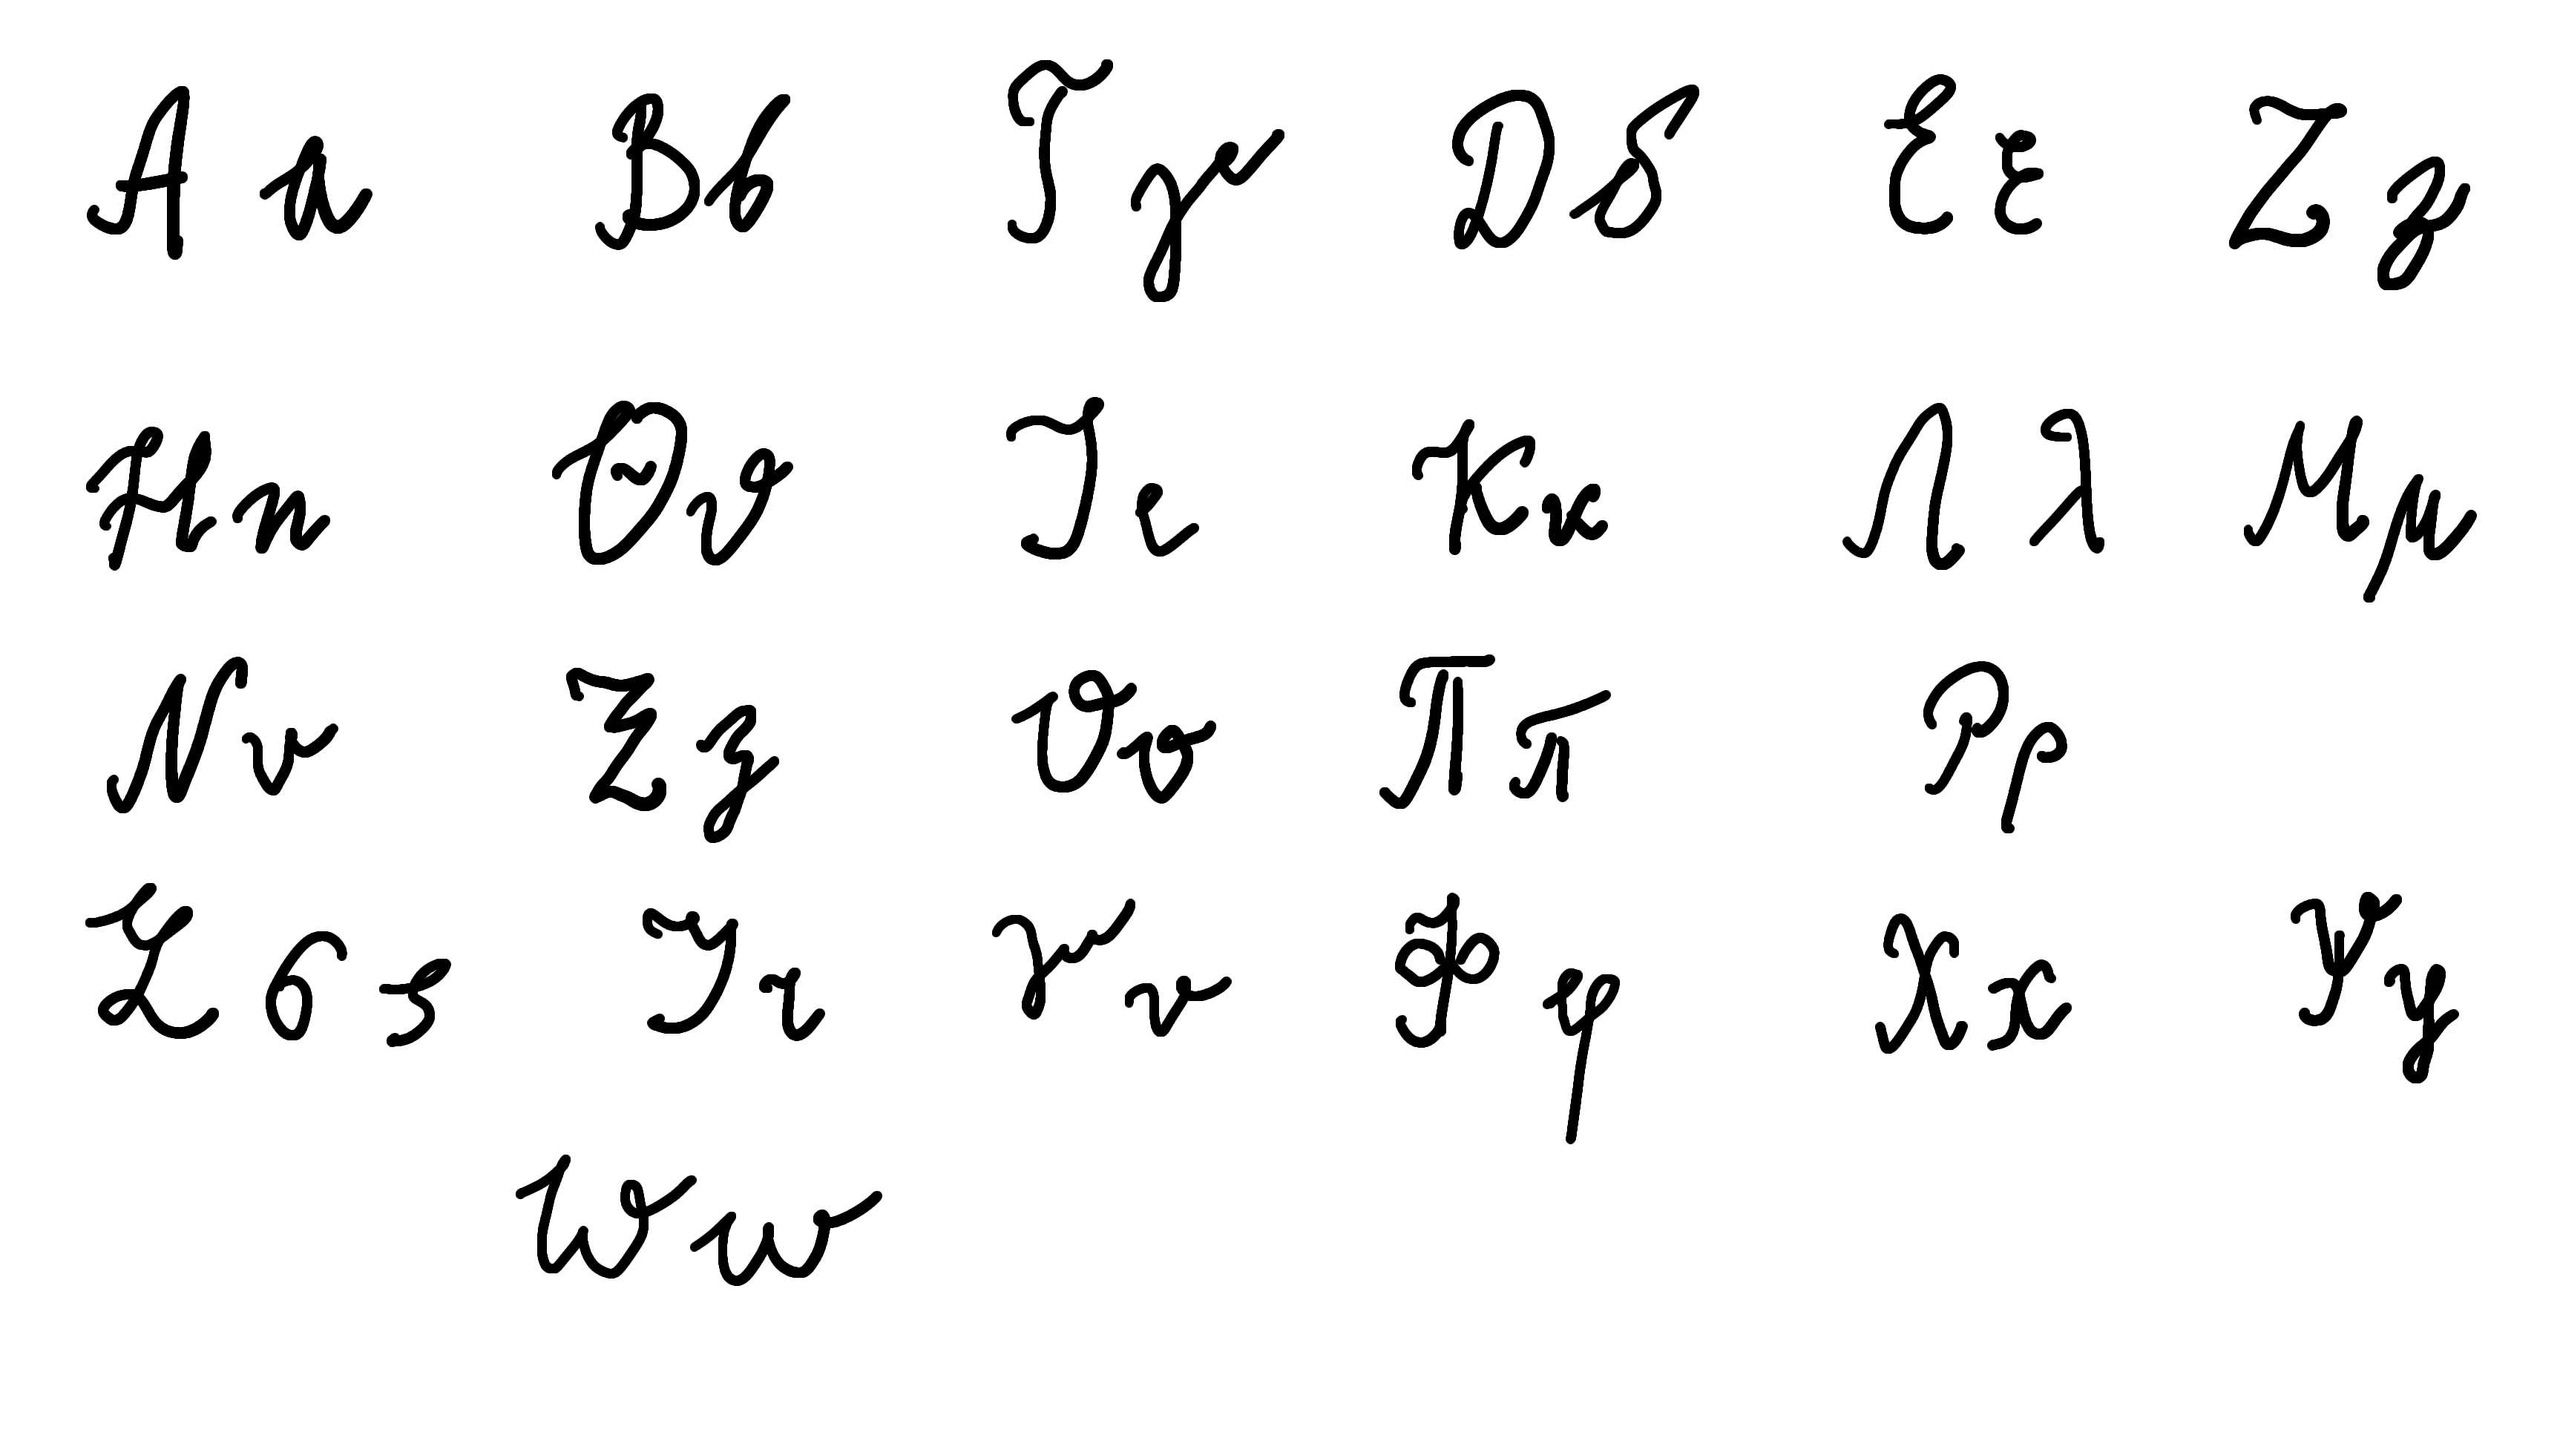 Α α Β β Γ γ Δ δ Ε ε Ζ ζ
Η η Θ θ Ι ι Κ κ Λ λ Μ μ
Ν ν Ξ ξ Ο ο Π π Ρ ρ
Σ σ ς Τ τ Υ υ Φ φ Χ χ Ψ ψ
Ω ω